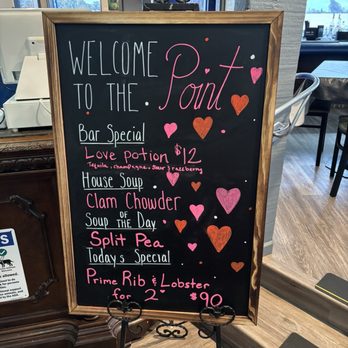 WELCOME
TO THE
Point
Bar Special
Love potion $12
Tequila, champagne, sour & raspberry
House Soup
Clam Chowder
Soup OF THE Day
Split Pea
Todays Special
Prime Rib & Lobster
for 2 $90